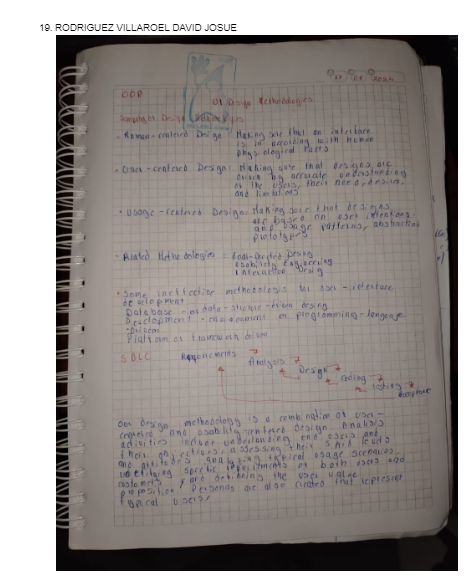 19. RODRIGUEZ VILLAROEL DAVID JOSUE
OOP
UI Design Methodologies
Design
• Human-centered Design Making sure that an interface
is in according with human
physiological
• User-centered Design: Making sure that designs are
driven by accurate understanding
of the users, their needs, desires,
and
• Usage-centered Design: Making sure that designs
are based on user intentions
and usage patterns, abstraction
prototypes
• Related Methodologies Goal-Directed Desing
Usability Engineering
Interaction Desing
• Some ineffective methodologis for user-interface
development
Database - or data-structure-driven desing
Development - environment or programming-language
-driven
Platform or framework driven
SDLC Requirements
Analysis
Design
Coding
Testing
Our design methodology is a combination of user-
centered and usability-centered Design. Analisis
activities include understanding end users and
their objectives, assessing their skill levels
and attitudes, analyzing typical usage scenarios
identifying specific of both users and
customers, and defining the user value
proposition. Personas are also created that represent
typical users.